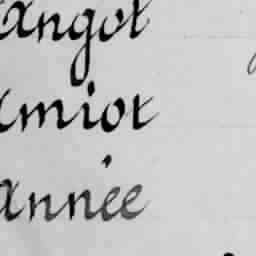 Angot
Amiot
Année